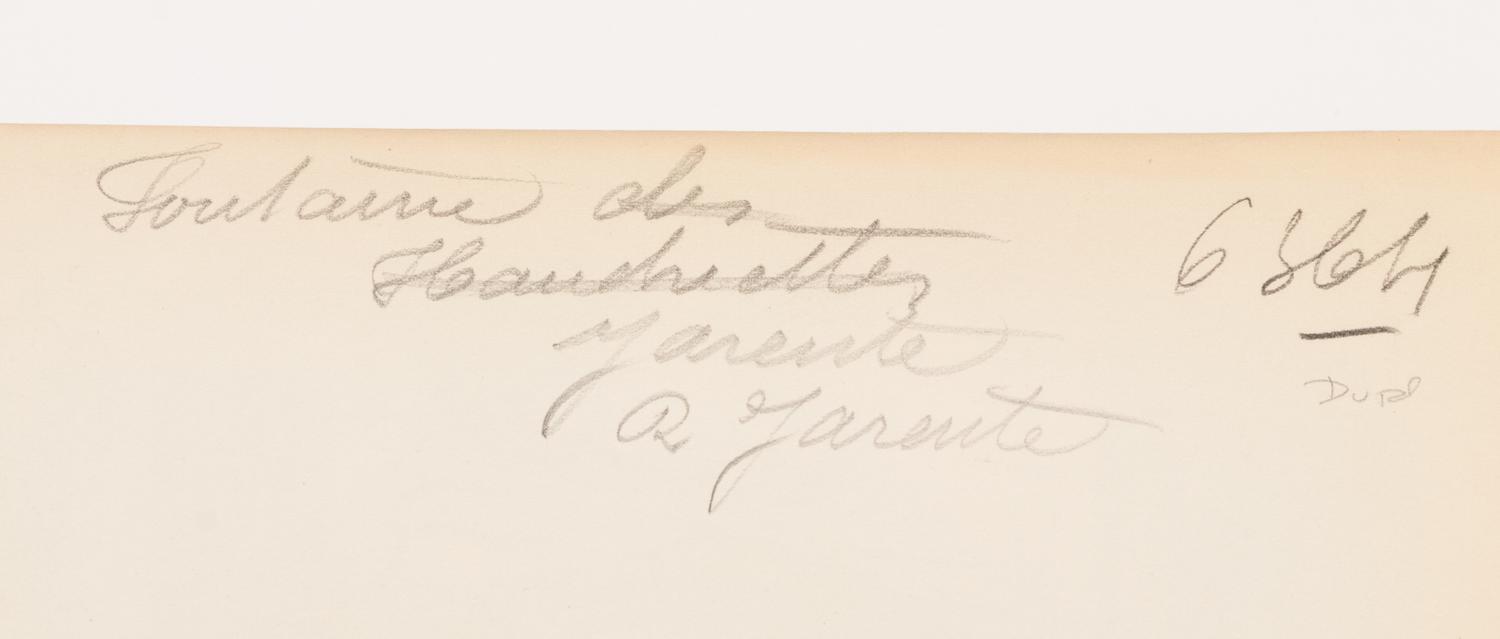 Fontaine des
Haudriettes
Jarente
R Jarente
6364